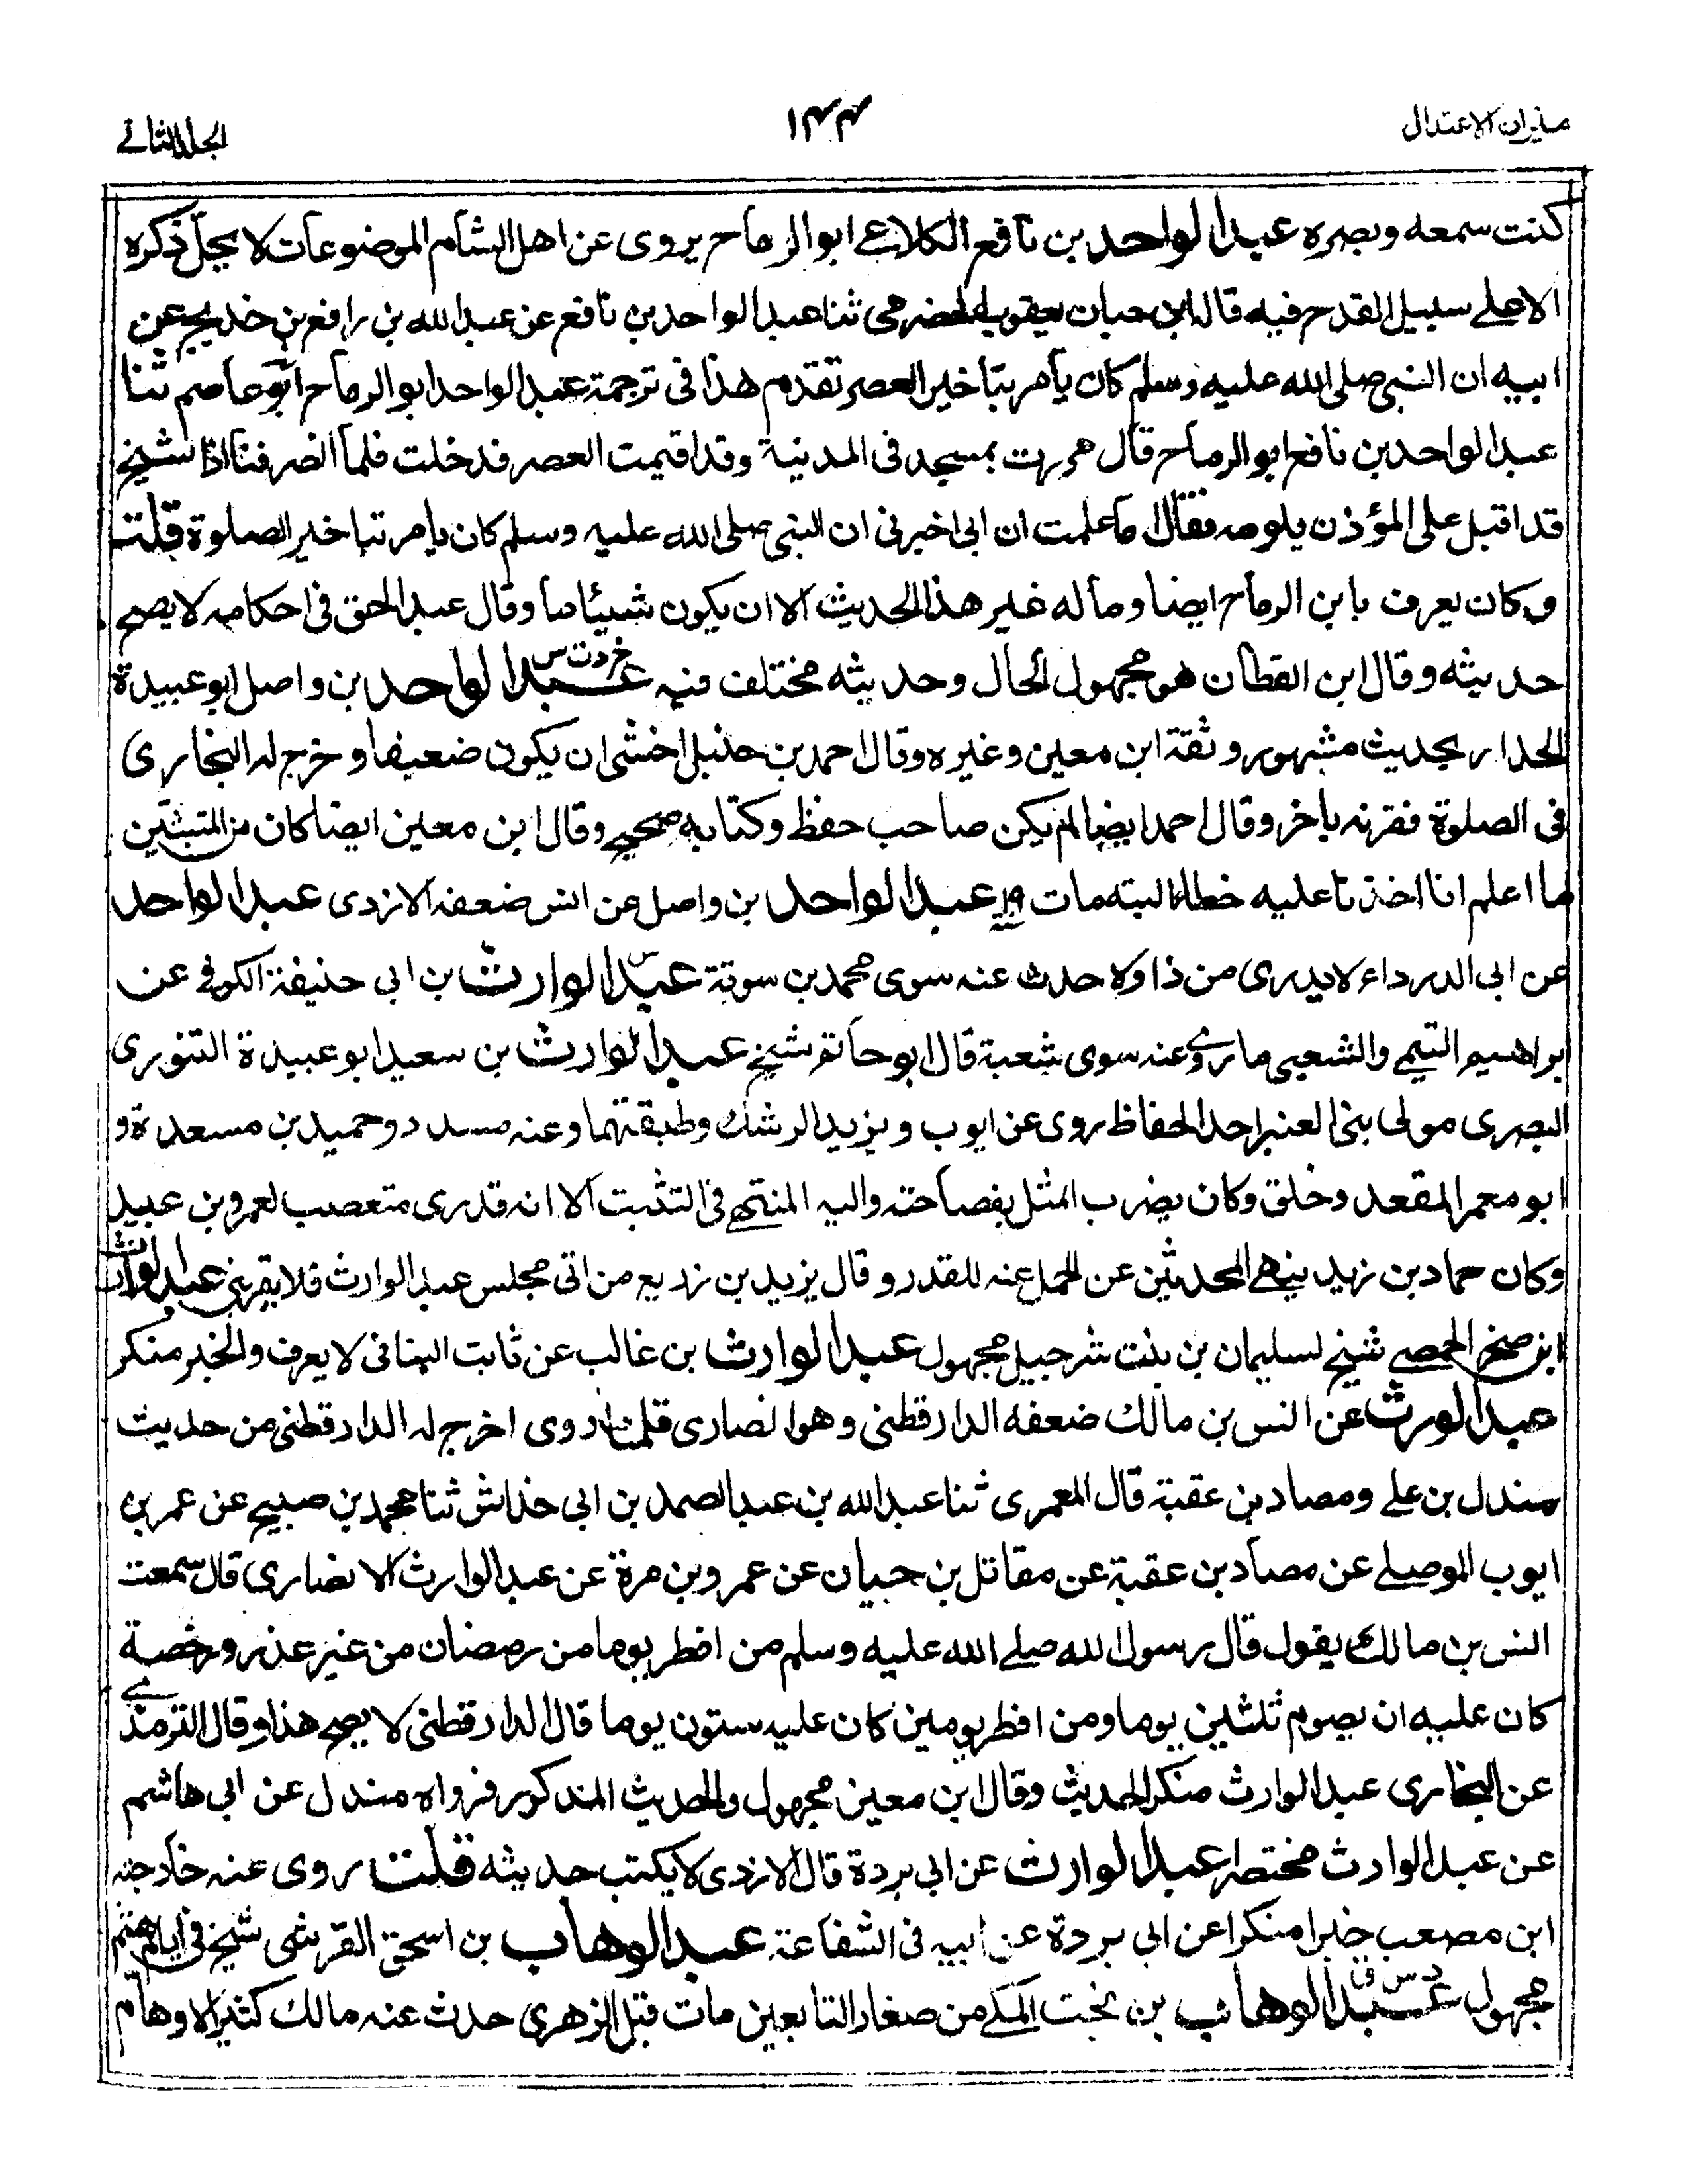 ميزان الاعتدال
١٤٤
الجلد الثاني
كنت سمعه وبصره عبد الواحد بن نافع الكلاعي ابو الرماح يروى عن اهل الشام الموضوعات لا يحل ذكره
الا على سبيل القدح فيه قاله ابن حبان يعقوب الحضرمى ثنا عبد الواحد بن نافع عن عبد الله بن رافع بن خديج عن
ابيه ان النبى صلى الله عليه وسلم كان يأمر بتاخير العصر تقدم هذا فى ترجمة عبد الواحد ابو الرماح ابو عاصم ثنا
عبد الواحد بن نافع ابو الرماح قال مررت بمسجد فى المدينة وقد اقيمت العصر فدخلت فلما انصرفنا اذا شيخ
قد اقبل على المؤذن يلومه فقال ما علمت ان ابى اخبرنى ان النبى صلى الله عليه وسلم كان يأمر بتاخير الصلوة قلت
وكان يعرف بابن الرماح ايضا وماله غير هذا الحديث الا ان يكون شيئا ما وقال عبد الحق فى احكامه لا يصح
حديثه وقال ابن القطان هو مجهول الحال وحديثه مختلف فيه عبد الواحد بن واصل ابو عبيدة
خ د ت س
الحداد بحديث مشهور وثقة ابن معين وغيره وقال احمد بن حنبل اخشى ان يكون ضعيفا وخرج له البخارى
فى الصلوة فقرنه باخر وقال احمد ايضا لم يكن صاحب حفظ وكتابه صحيح وقال ابن معين ايضا كان من المتثبتين
ما اعلم انا اخذنا عليه خطاء البته مات عبد الواحد بن واصل عن انس ضعفه الازدى عبد الواحد
عن ابى الدرداء لا يدرى من ذا ولا حدث عنه سوى محمد بن سوقة عبد الوارث بن ابى حنيفة الكوفى عن
ابراهيم التيمى والشعبى ما روى عنه سوى شعبة قال ابو حاتم شيخ عبد الوارث بن سعيد ابو عبيدة التنورى
البصرى مولى بنى العنبر احد الحفاظ روى عن ايوب ويزيد الرشك وطبقتهما وعنه مسدد وحميد بن مسعدة و
ابو معمر المقعد وخلق وكان يضرب المثل بفصاحته واليه المنتهى فى التثبت الا انه قدرى متعصب لعمرو بن عبيد
وكان حماد بن زيد ينهى المحدثين عن الحمل عنه للقدر وقال يزيد بن زريع من اتى مجلس عبد الوارث فلا يقربنى عبد الوارث
ابن صخر الحمصى شيخ لسليمان بن بنت شرحبيل مجهول عبد الوارث بن غالب عن ثابت البنانى لا يعرف والخبر منكر
عبد الورث عن انس بن مالك ضعفه الدارقطنى وهو انصارى قلما روى اخرج له الدارقطنى من حديث
مندل بن على ومصاد بن عقبة قال المعمرى ثنا عبد الله بن عبد الصمد بن ابى خداش ثنا محمد بن صبيح عن عمر بن
ايوب الموصلى عن مصاد بن عقبة عن مقاتل بن حيان عن عمرو بن مرة عن عبد الوارث الانصارى قال سمعت
انس بن مالك يقول قال رسول الله صلى الله عليه وسلم من افطر يوما من رمضان من غير عذر ورخصة
كان عليه ان يصوم ثلثين يوما ومن افطر يومين كان عليه ستون يوما قال الدارقطنى لا يصح هذا وقال الترمذى
عن البخارى عبد الوارث منكر الحديث وقال ابن معين مجهول والحديث المذكور فرواه مندل عن ابى هاشم
عن عبد الوارث مختصرا عبد الوارث عن ابى بردة قال الازدى لا يكتب حديثه قلت روى عنه خارجة
ابن مصعب خبرا منكرا عن ابى بردة عن ابيه فى الشفاعة عبد الوهاب بن اسحق القرشى شيخ فى ايام هشم
د س ق
مجهول عبد الوهاب بن بخت المكى من صغار التابعين مات قبل الزهرى حدث عنه مالك كثير الاوهام